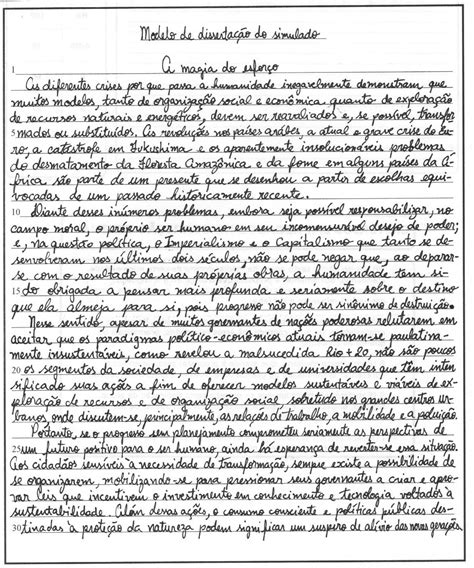 Modelo de dissertação do simulado
A magia do esforço
1 As diferentes crises por que passa a humanidade inegavelmente demonstram que
muitos modelos, tanto de organização social e econômica quanto de exploração
de recursos naturais e energéticos, devem ser reavaliados e, se possível, transfor
5 mados ou substituídos. As revoluções nos países árabes, a atual e grave crise do Eu-
ro, a catástrofe em Fukushima e os aparentemente insolucionáveis problemas
do desmatamento da Floresta Amazônica e da fome em alguns países da Á-
frica são parte de um presente que se desenhou a partir de escolhas equi-
vocadas de um passado historicamente recente.
10 Diante desses inúmeros problemas, embora seja possível responsabilizar, no
campo moral, o próprio ser humano em seu incomensurável desejo de poder;
e, na questão política, o Imperialismo e o Capitalismo que tanto se de-
senvolveram nos últimos dois séculos, não se pode negar que, ao deparar-
se com o resultado de suas próprias obras, a humanidade tem si-
15 do obrigada a pensar mais profunda e seriamente sobre o destino
que ela almeja para si, pois progresso não pode ser sinônimo de destruição.
Nesse sentido, apesar de muitos governantes de nações poderosas relutarem em
aceitar que os paradigmas político-econômicos atuais tornam-se paulatina-
mente insustentáveis, como revelou a malsucedida Rio+20, não são poucos
20 os segmentos da sociedade, de empresas e de universidades que têm inten
sificado suas ações a fim de oferecer modelos sustentáveis e viáveis de ex-
ploração de recursos e de organização social, sobretudo nos grandes centros ur-
banos, onde discutem-se, principalmente, as relações de trabalho, a mobilidade e a poluição.
Portanto, se o progresso sem planejamento comprometeu seriamente as perspectivas de
25 um futuro positivo para o ser humano, ainda há esperança de reverter-se essa situação.
Aos cidadãos sensíveis à necessidade de transformação, sempre existe a possibilidade de
se organizarem, mobilizando-se para pressionar seus governantes a criar e apro-
var leis que incentivem o investimento em conhecimento e tecnologia voltados à
sustentabilidade. Além dessas ações, o consumo consciente e políticas públicas des-
30 tinadas à proteção da natureza podem significar um suspiro de alívio das novas gerações.